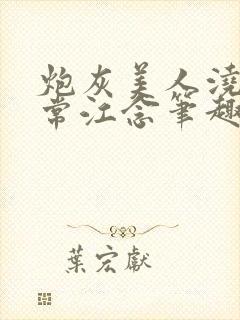 炮灰美人澆
常江念筆趣
葉宏獻